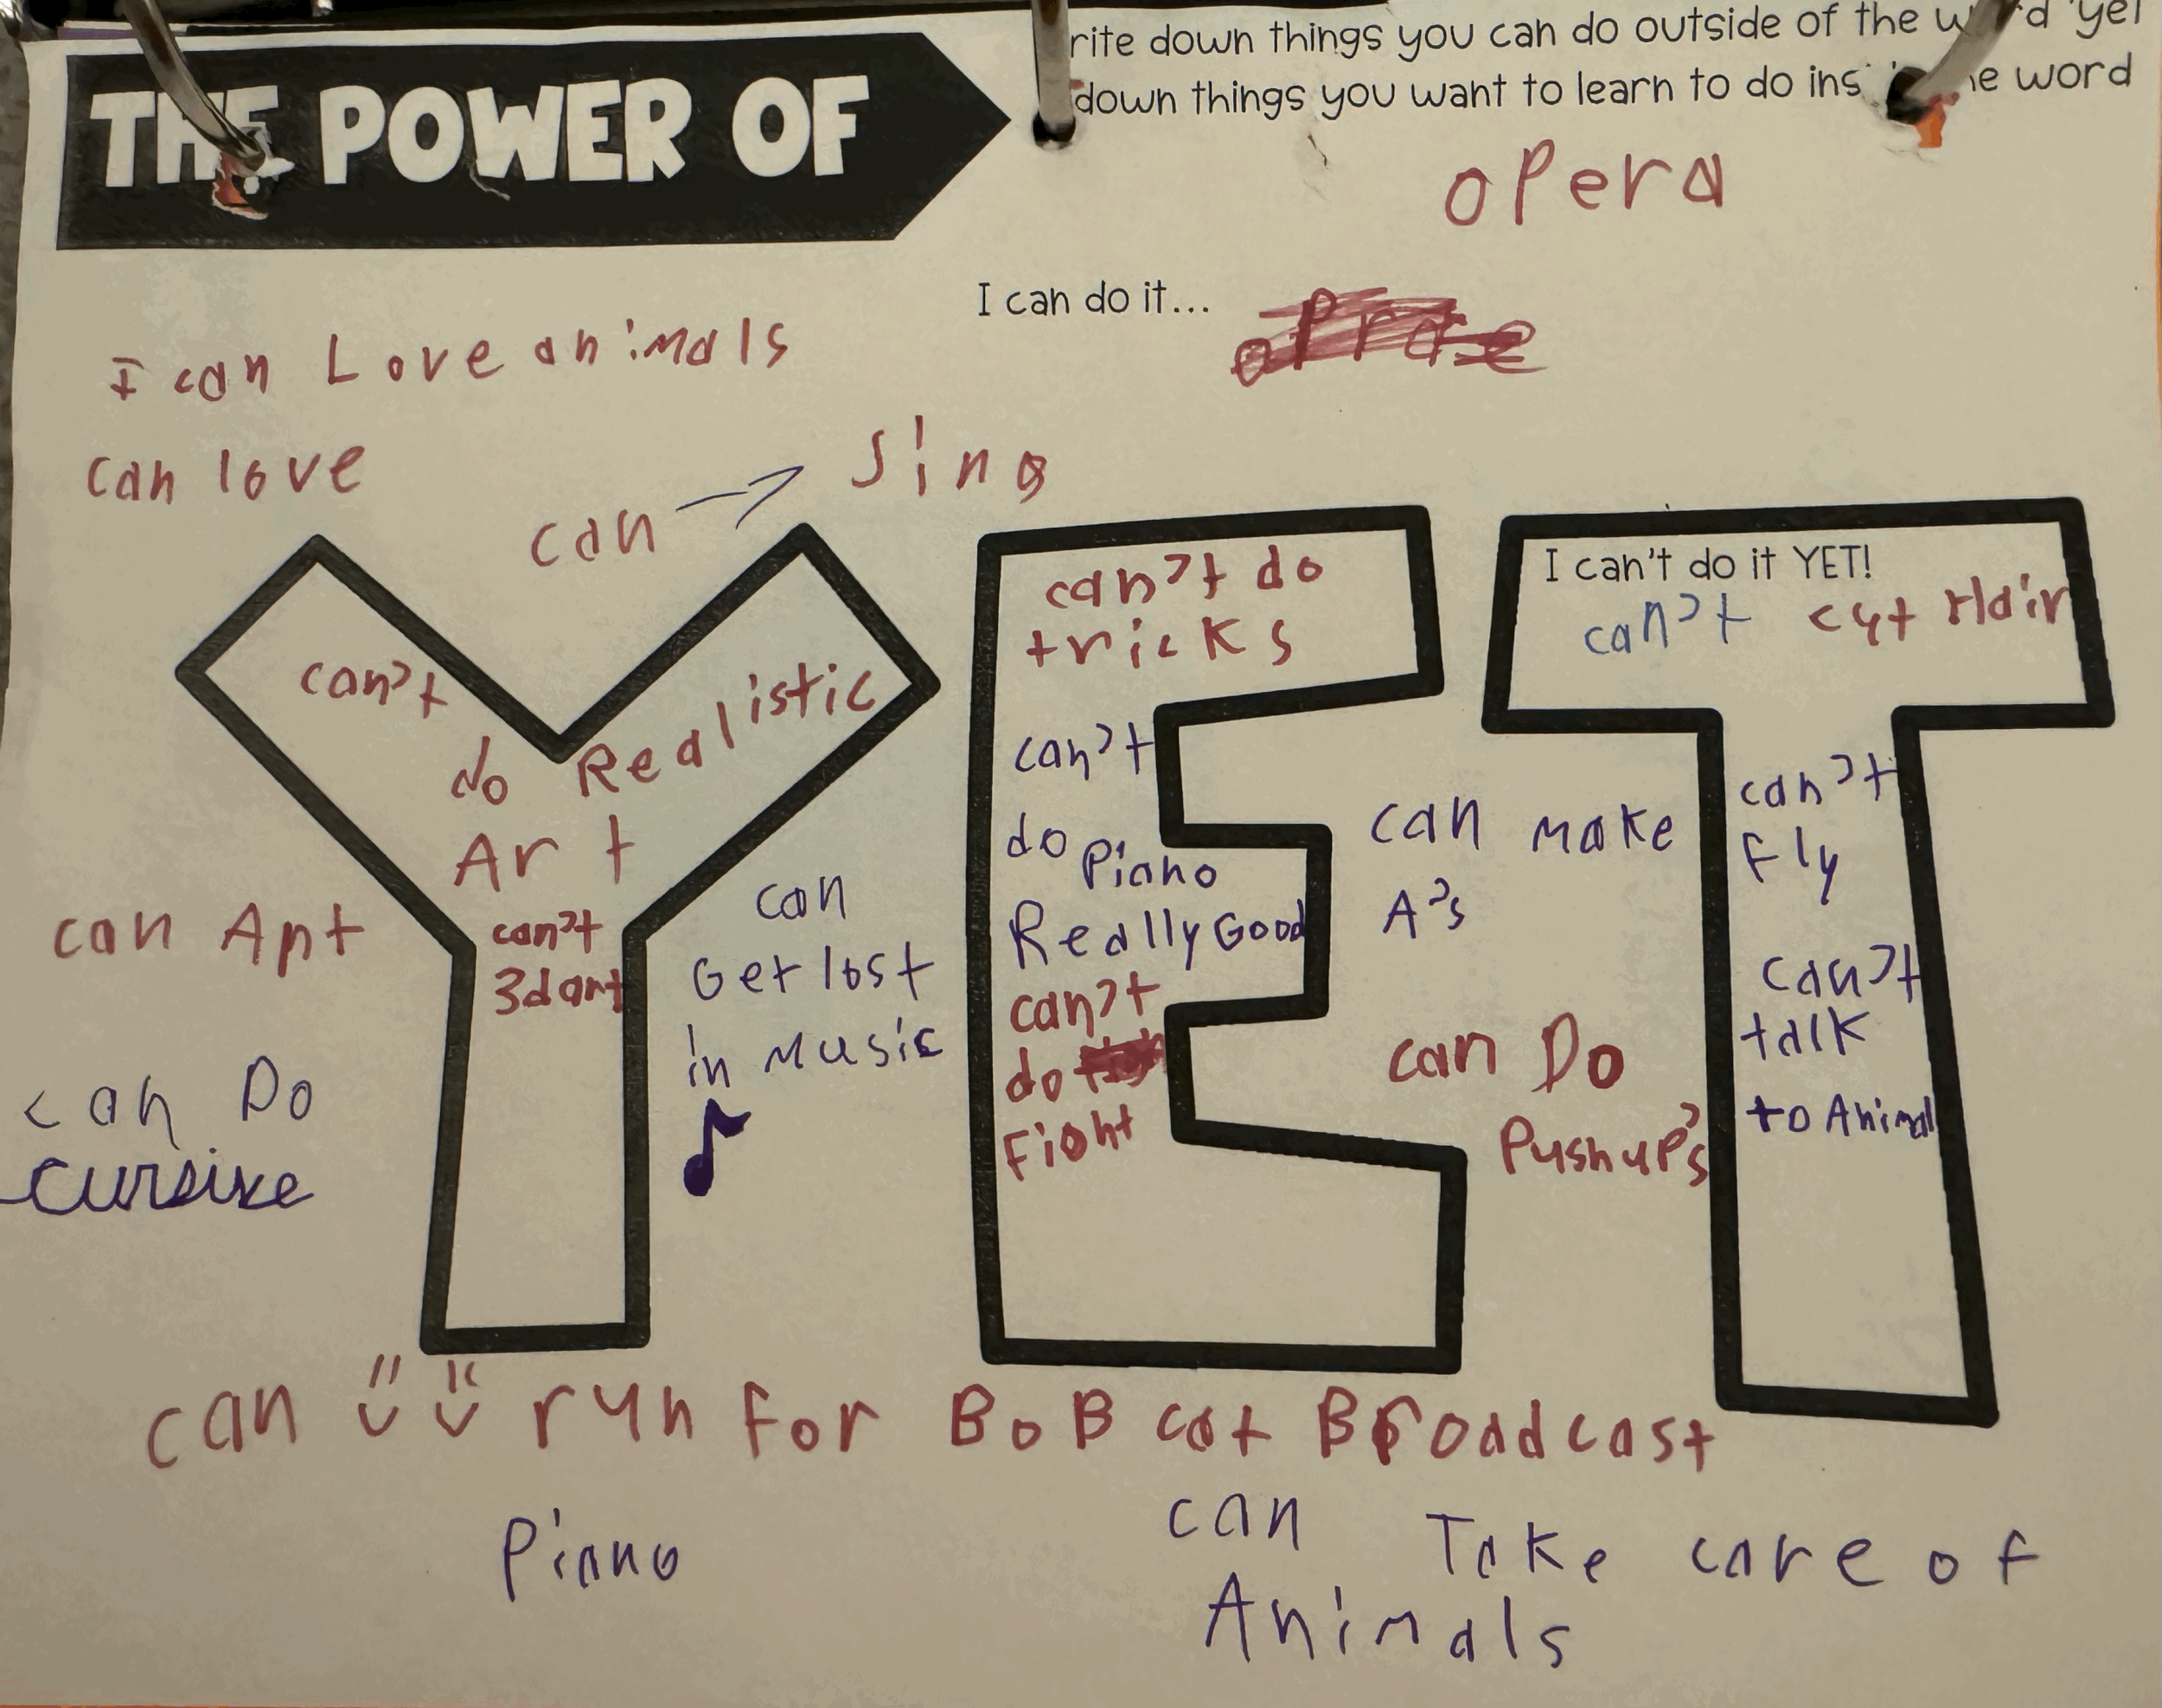 THE POWER OF
rite down things you can do outside of the w rd "yet
down things you want to learn to do ins he word
opera
I can do it...
I can Love animals
can love
can → sing
can't
do Realistic
Art
can't
3d art
can't do
tricks
can't
do Piano
Really Good
can't
do
Fight
I can't do it YET!
can't cut Hair
can't
Fly
can't
talk
to Animal
can Art
can Do
cursive
can
Get lost
in Music
can make
A's
can Do
Pushup's
can run for BoB cat Broadcast
Piano
can Take care of
Animals